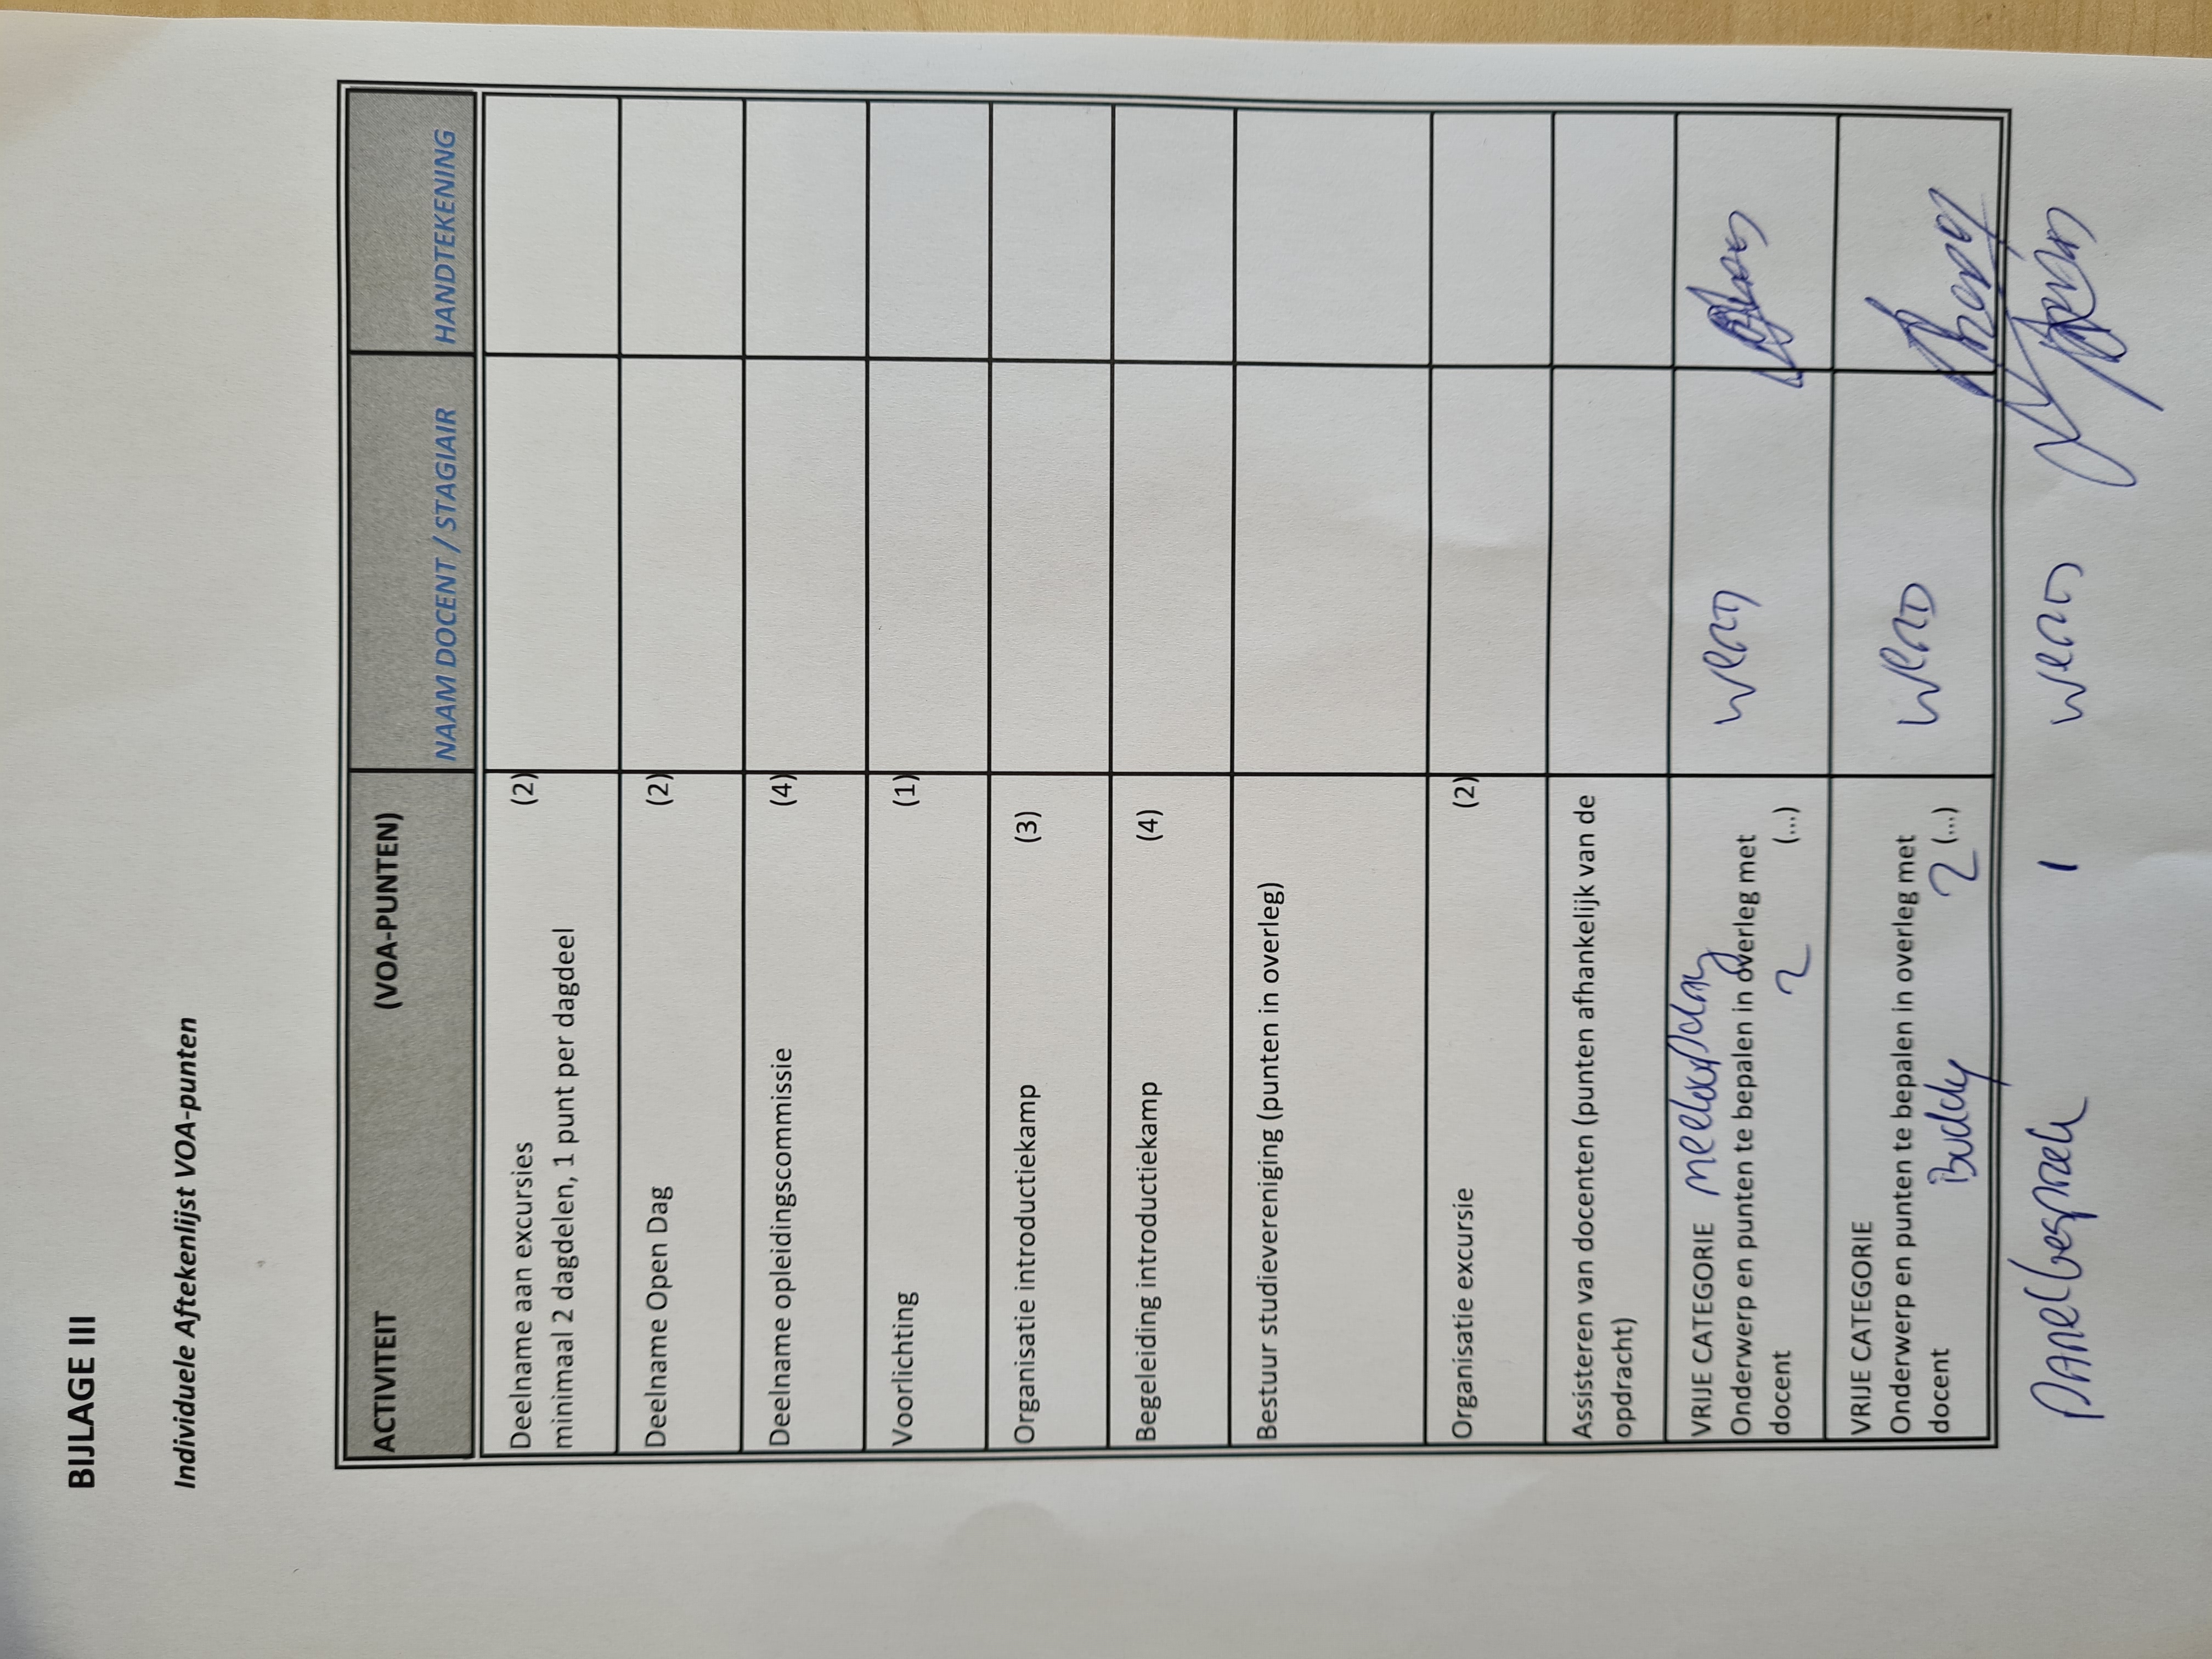 BIJLAGE III
Individuele Aftekenlijst VOA-punten
ACTIVITEIT (VOA-PUNTEN)
NAAM DOCENT / STAGIAIR
HANDTEKENING
Deelname aan excursies (2)
minimaal 2 dagdelen, 1 punt per dagdeel
Deelname Open Dag (2)
Deelname opleidingscommissie (4)
Voorlichting (1)
Organisatie introductiekamp (3)
Begeleiding introductiekamp (4)
Bestuur studievereniging (punten in overleg)
Organisatie excursie (2)
Assisteren van docenten (punten afhankelijk van de
opdracht)
VRIJE CATEGORIE meeloopdag
Onderwerp en punten te bepalen in overleg met
docent 2 (...)
VRIJE CATEGORIE
Onderwerp en punten te bepalen in overleg met
docent Buddy 2 (...)
Panelgesprek 1